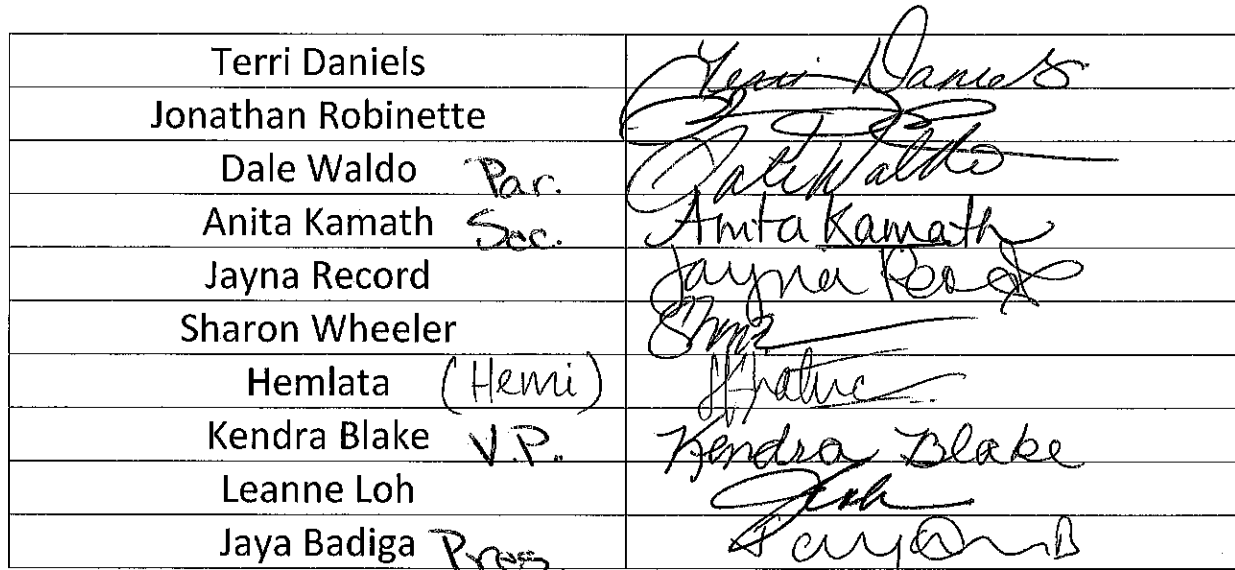 Terri Daniels Terri Daniels
Jonathan Robinette
Dale Waldo Par. Dale Waldo
Anita Kamath Sec. Anita Kamath
Jayna Record Jayna Record
Sharon Wheeler
Hemlata (Hemi)
Kendra Blake V.P. Kendra Blake
Leanne Loh
Jaya Badiga Pres